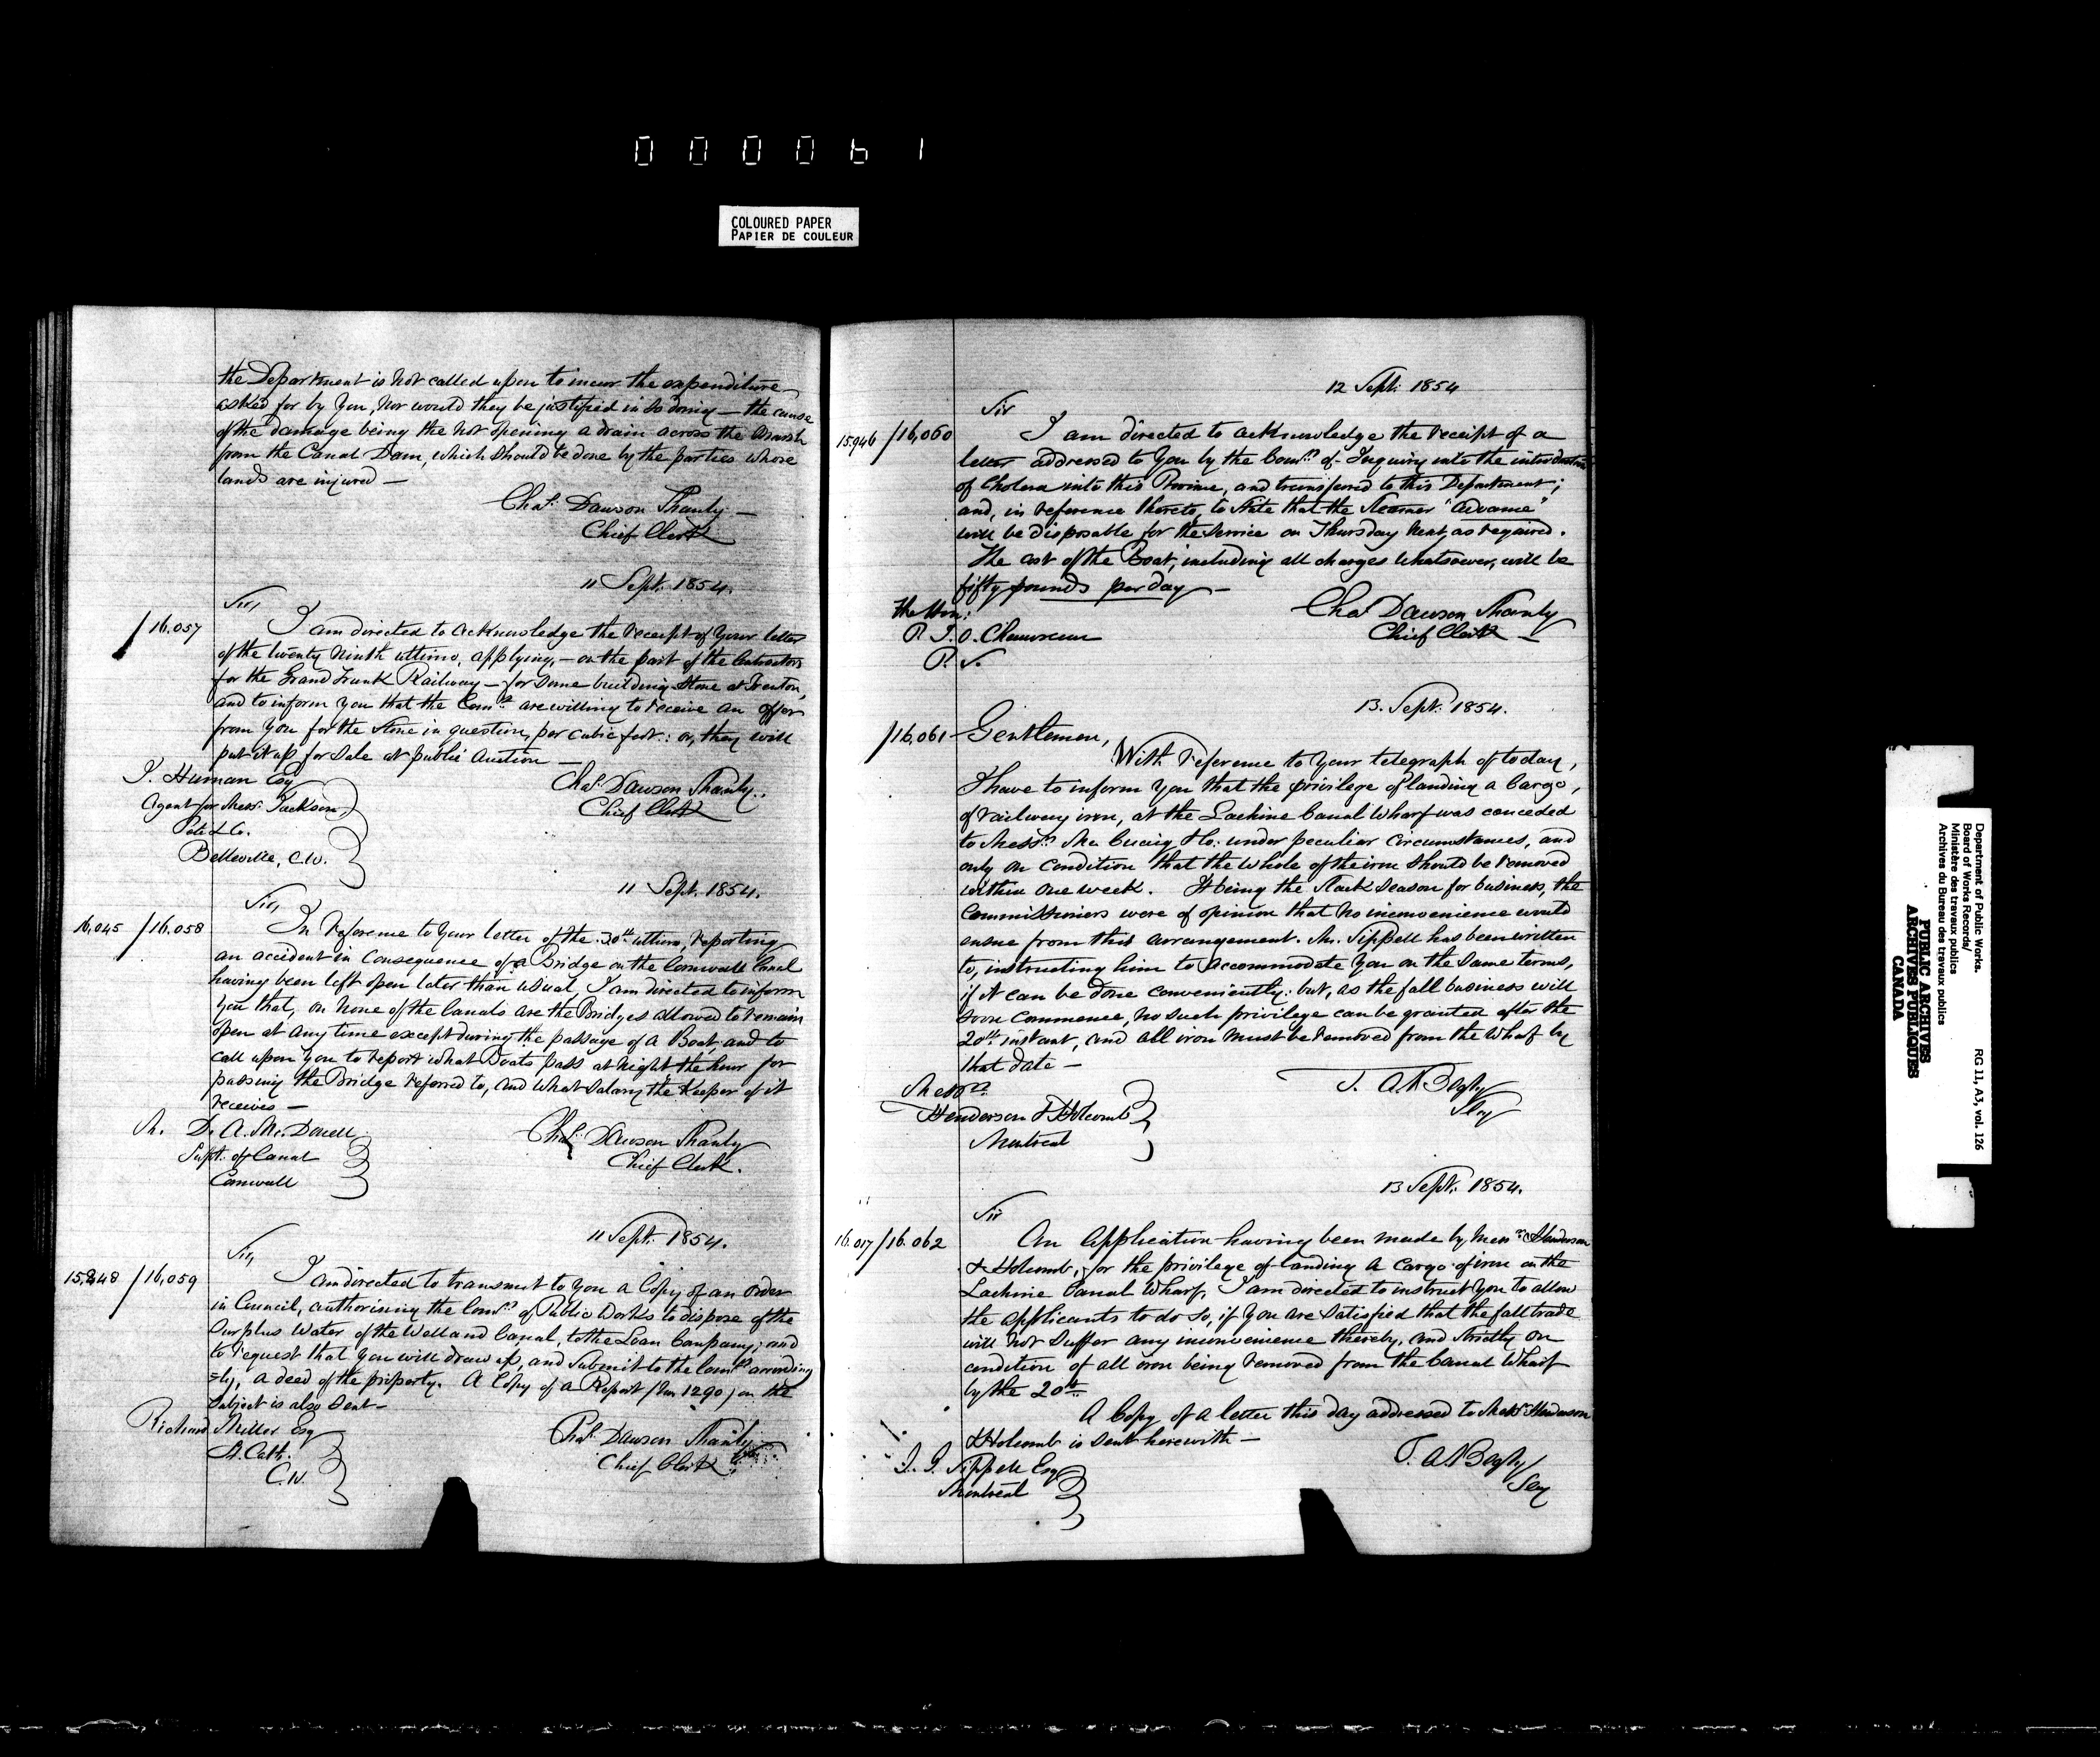 000061
COLOURED PAPER
PAPIER DE COULEUR
the Department is not called upon to incur the expenditure
asked for by you, nor would they be justified in so doing — the cause
of the damage being the not opening a drain across the Marsh
from the Canal Dam, which should be done by the parties whose
lands are injured —
Chas. Dawson Shanly —
Chief Clerk
11 Sept. 1854.
Sir,
/16.057
I am directed to acknowledge the receipt of your letter
of the twenty ninth ultimo, applying, — on the part of the Contractors
for the Grand Trunk Railway — for some building stone at Trenton,
and to inform you that the Comrs. are willing to receive an offer
from you for the stone in question, per cubic foot: or, they will
put it up for sale at public auction —
J. Human Esq
Agent for Messrs. Jackson,
Peto & Co.
Belleville, C.W.
Chas. Dawson Shanly.
Chief Clerk
11 Sept. 1854.
Sir,
16,045 /16.058
In reference to your letter of the 30th ultimo, reporting
an accident in consequence of a Bridge on the Cornwall Canal
having been left open later than usual, I am directed to inform
you that, on none of the Canals are the Bridges allowed to remain
open at any time except during the passage of a Boat; and to
call upon you to report what Boats pass at night the hour for
passing the Bridge referred to, and what salary the Keeper of it
receives —
Mr. D. A. McDonell
Supt. of Canal
Cornwall
Chas. Dawson Shanly
Chief Clerk.
11 Sept. 1854.
Sir,
/16,059
I am directed to transmit to you a Copy of an Order
in Council, authorising the Comrs. of Public Works to dispose of the
Surplus Water of the Welland Canal, to the Loan Company; and
to request that you will draw up, and submit to the Comrs. according
=ly, a deed of the property. A Copy of a Report (No. 1290) on the
subject is also sent —
Richard Miller Esq
St. Cath.
C.W.
Chas. Dawson Shanly
Chief Clerk
12 Sept. 1854
Sir
15.946 /16,060
I am directed to acknowledge the receipt of a
letter addressed to you by the Comrs. of Inquiry into the introduction
of Cholera into this Province, and transferred to this Department;
and, in reference thereto, to state that the Steamer "Advance"
will be disposable for the service on Thursday next, as required.
The cost of the Boat, including all charges whatsoever, will be
fifty pounds per day —
The Hon:
P. J. O. Chauveau
P. S.
Chas Dawson Shanly
Chief Clerk —
13. Sept. 1854.
/16.061
Gentlemen,
With reference to your telegraph of today,
I have to inform you that the privilege of landing a Cargo,
of railway iron, at the Lachine Canal Wharf was conceded
to Messrs. McCuaig & Co. under peculiar circumstances, and
only on condition that the whole of the iron should be removed
within one week. It being the slack season for business, the
Commissioners were of opinion that no inconvenience would
ensue from this arrangement. Mr. Sippell has been written
to, instructing him to accommodate you on the same terms,
if it can be done conveniently: but, as the fall business will
soon commence, no such privilege can be granted after the
20th. instant, and all iron must be removed from the Wharf by
that date —
Messrs.
Henderson & Holcomb
Montreal
T. A. Begly
Secy
13 Sept. 1854.
Sir
16.017 /16.062
An application having been made by Messrs. Henderson
& Holcomb, for the privilege of landing a cargo of iron on the
Lachine Canal Wharf, I am directed to instruct you to allow
the applicants to do so, if you are satisfied that the fall trade
will not suffer any inconvenience thereby, and strictly on
condition of all iron being removed from the Canal Wharf
by the 20th.
A Copy of a letter this day addressed to Messrs. Henderson
& Holcomb is sent herewith —
Sippell Esq
Montreal
T. A. Begly
Secy
Department of Public Works.
Board of Works Records/
Ministère des travaux publics
Archives du Bureau des travaux publics
RG 11, A3, vol. 126
PUBLIC ARCHIVES
ARCHIVES PUBLIQUES
CANADA